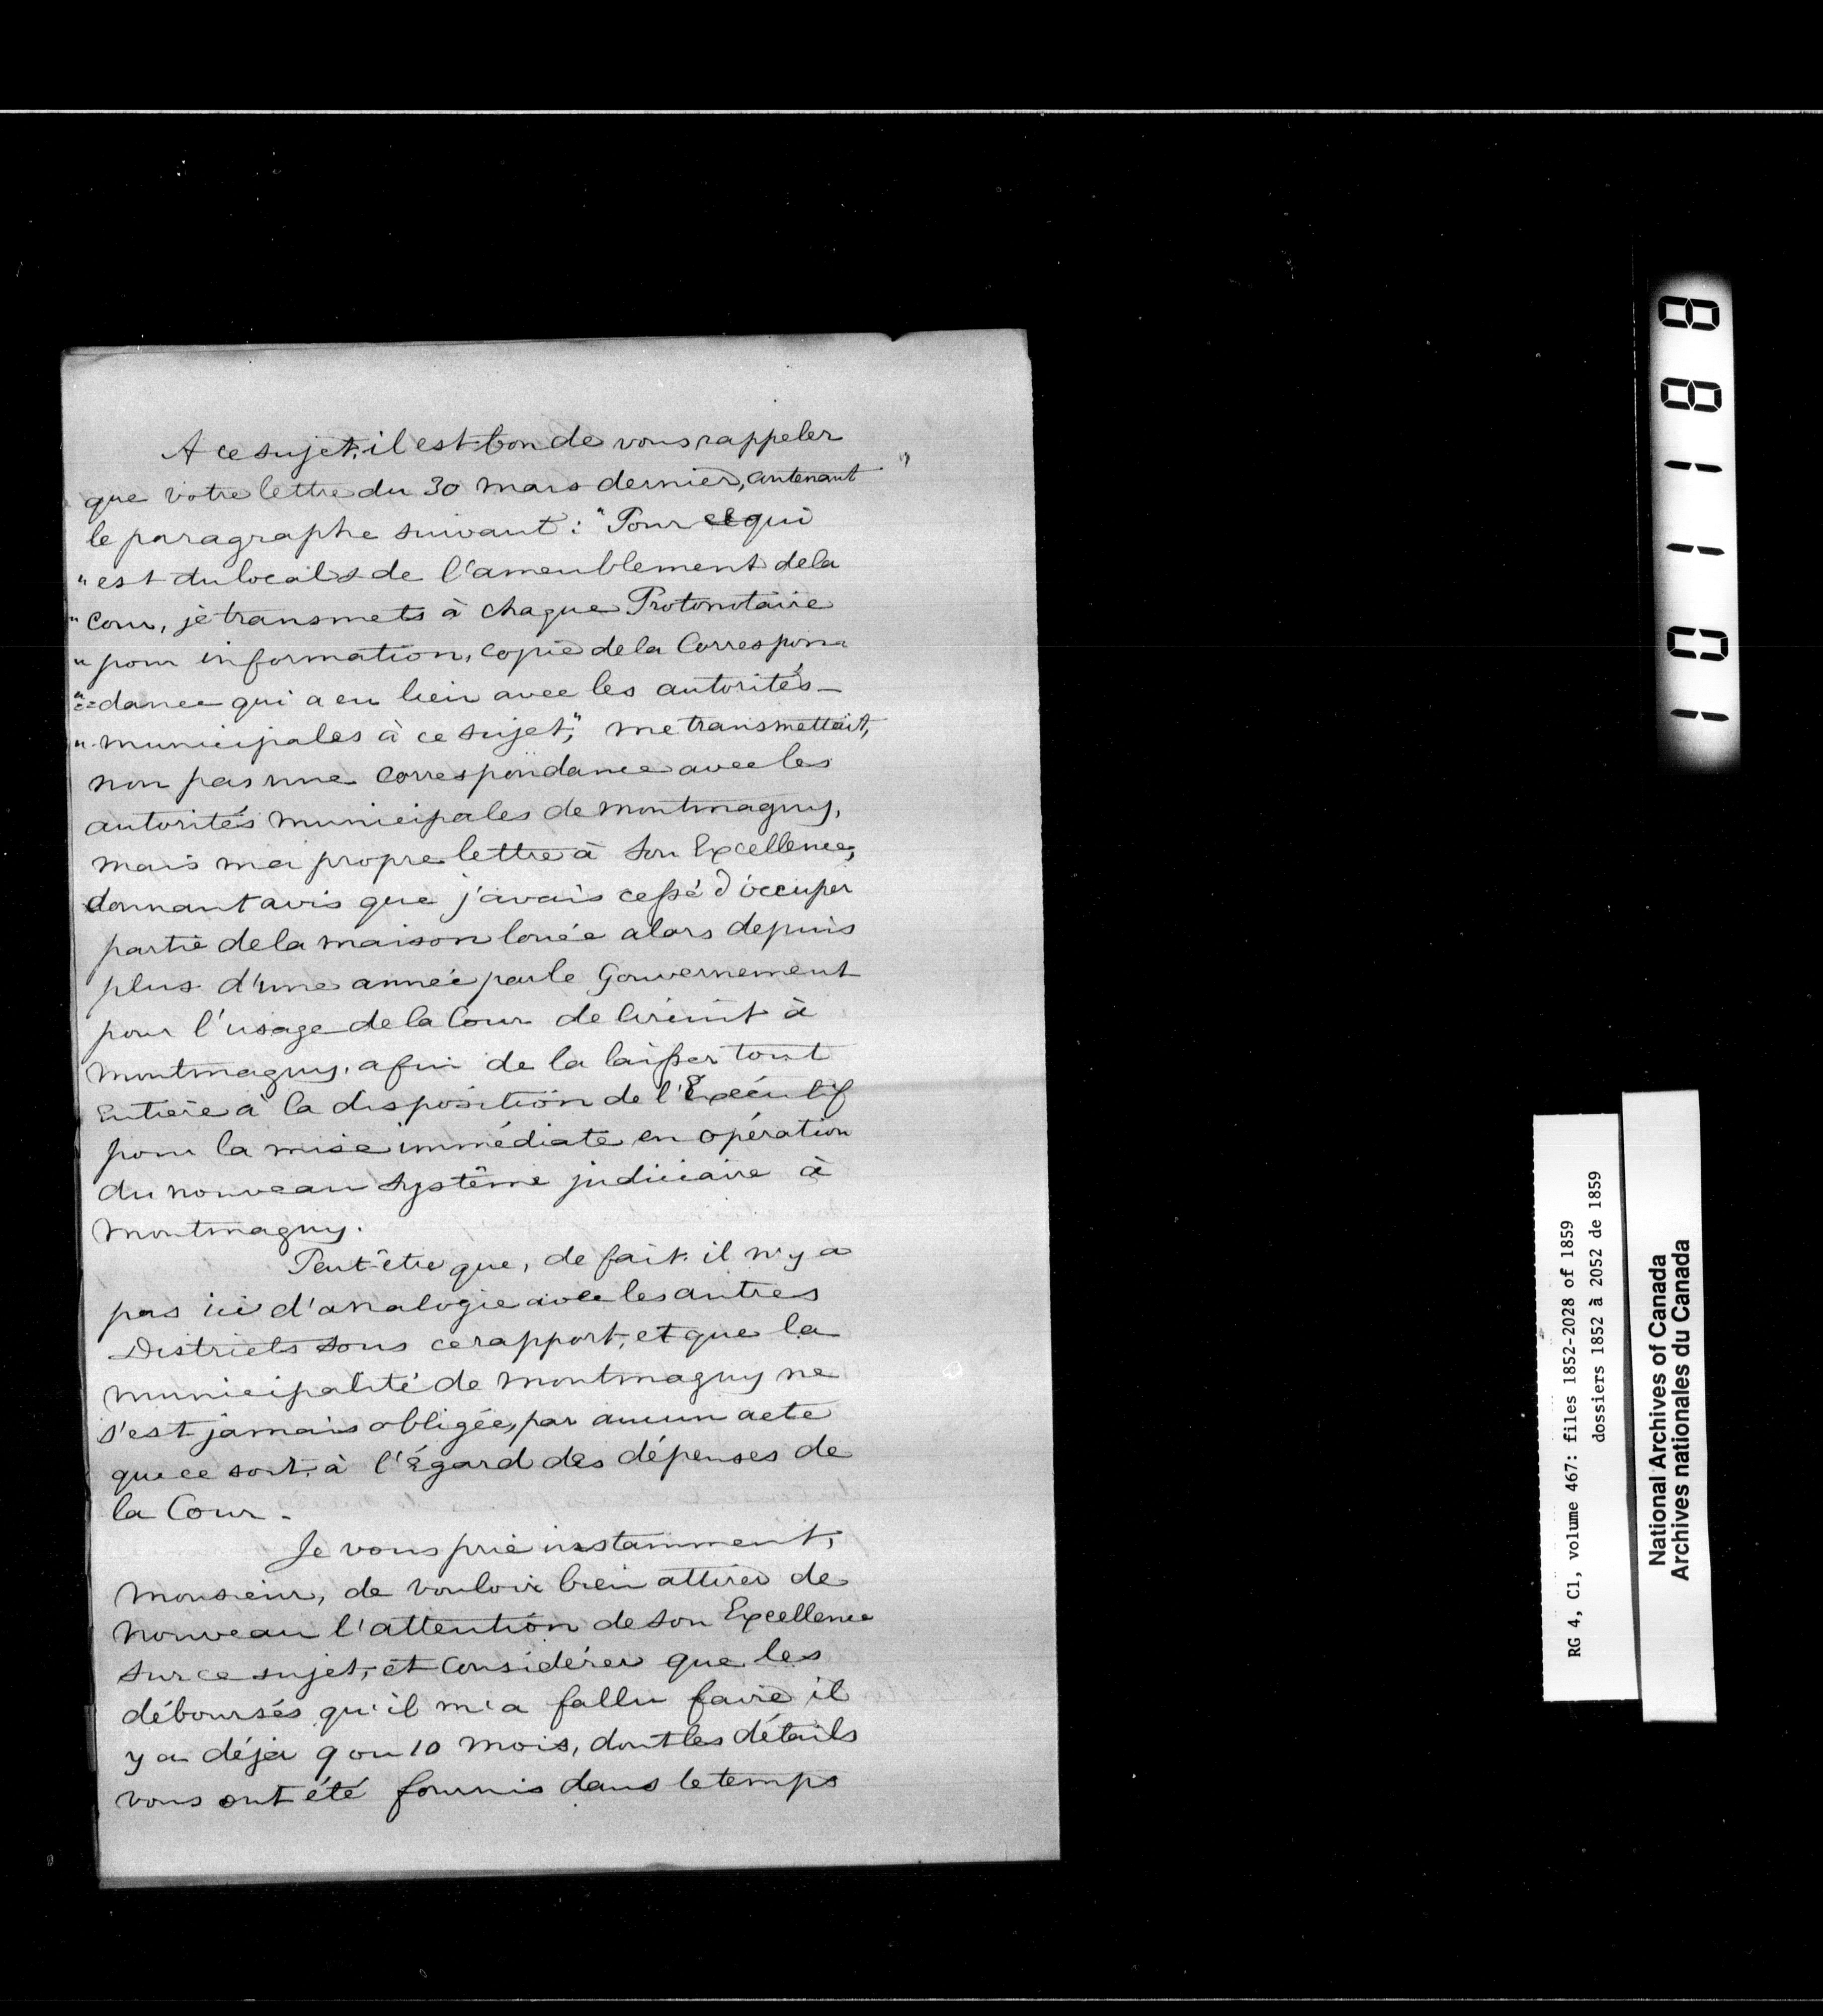 A ce sujet, il est bon de vous rappeler
que votre lettre du 30 mars dernier, contenant
le paragraphe suivant : "Pour ce qui
" est du local & de l'ameublement de la
" Cour, je transmets à chaque Protonotaire
" pour information, copie de la Correspon-
"=dance qui a eu lieu avec les autorités
" municipales à ce sujet," me transmettait,
non pas une correspondance avec les
autorités municipales de Montmagny,
mais ma propre lettre à Son Excellence,
donnant avis que j'avais cessé d'occuper
partie de la maison louée alors depuis
plus d'une année par le Gouvernement
pour l'usage de la Cour de Circuit à
Montmagny, afin de la laisser tout
Entière à la disposition de l'Exécutif
pour la mise immédiate en opération
du nouveau système judiciaire à
Montmagny.
Peut-être que, de fait, il n'y a
pas ici d'analogie avec les autres
Districts sous ce rapport, et que la
municipalité de Montmagny ne
s'est jamais obligée, par aucun acte
que ce soit, à l'Égard des dépenses de
la Cour.
Je vous prie instamment,
Monsieur, de vouloir bien attirer de
nouveau l'attention de Son Excellence
sur ce sujet, et Considérer que les
déboursés qu'il m'a fallu faire il
y a déjà 9 ou 10 mois, dont les détails
vous ont été fournis dans le temps
1011188
RG 4, C1, volume 467: files 1852-2028 of 1859
dossiers 1852 à 2052 de 1859
National Archives of Canada
Archives nationales du Canada